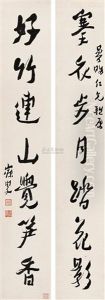 褰衣步月踏花影
仁兄
好竹連山覺筍香